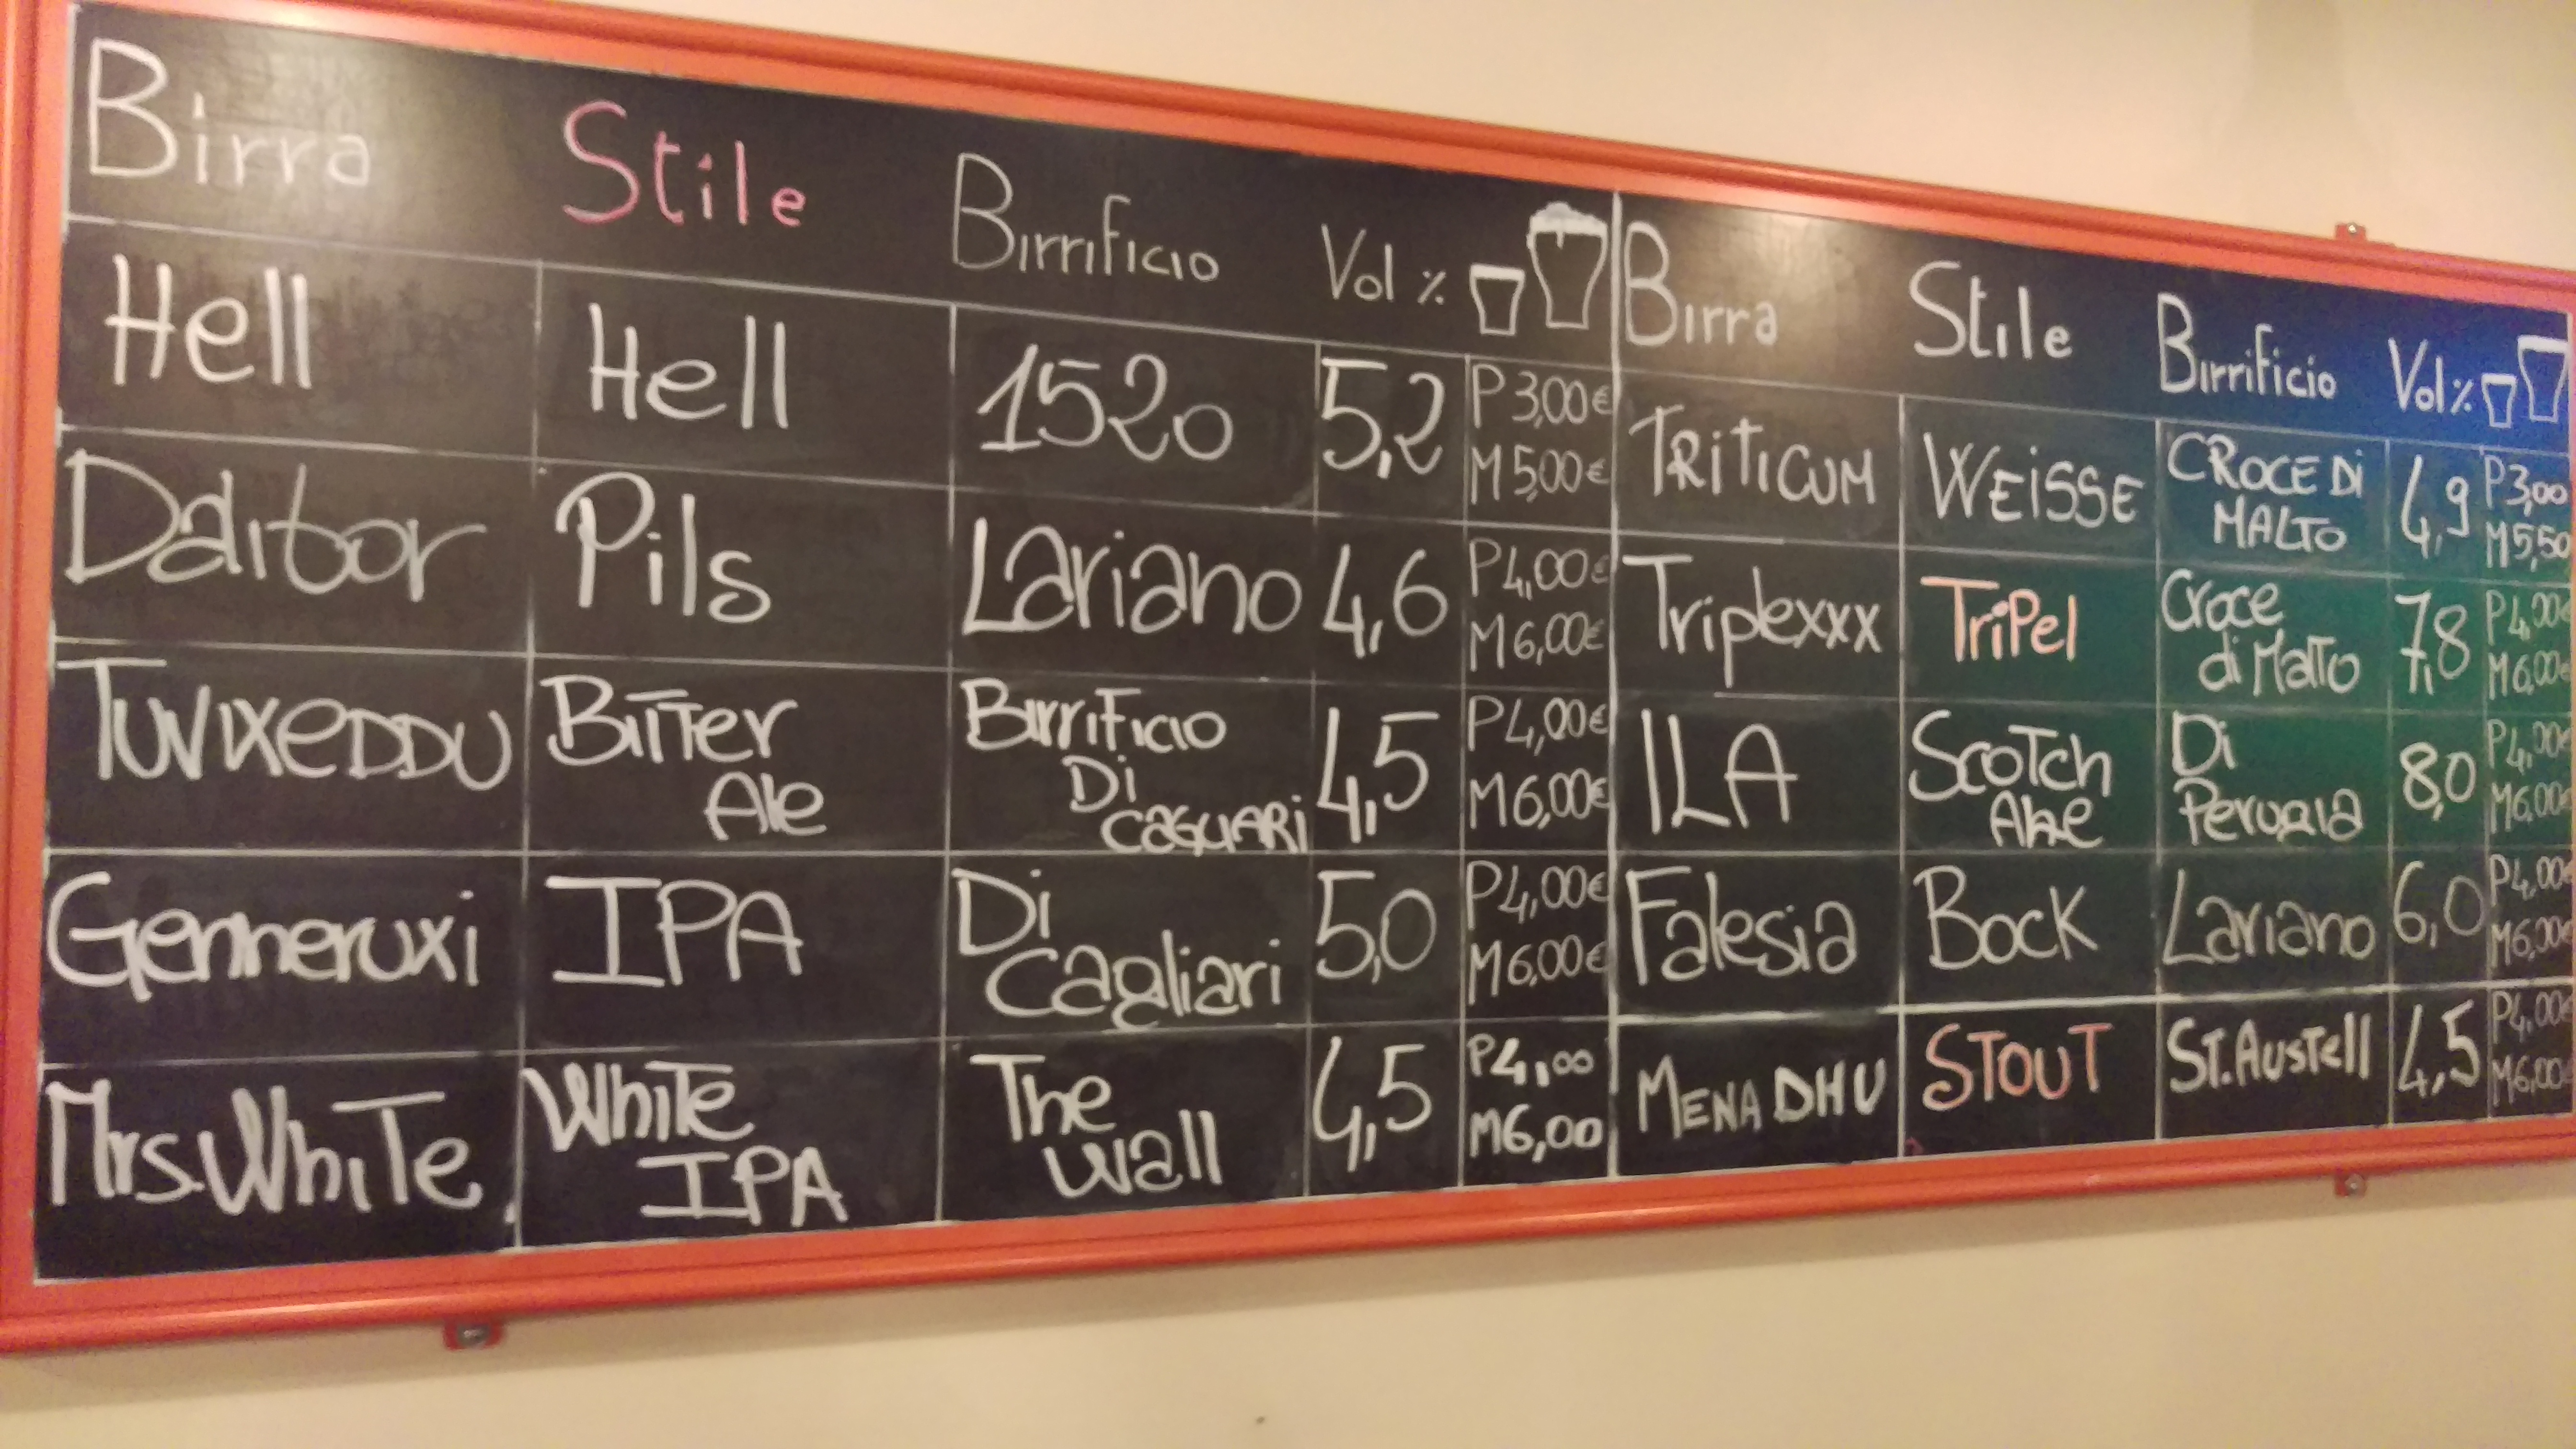 Birra Stile Birrificio Vol %
Hell Hell 1520 5,2 P 3,00€
M 5,00€
Daitor Pils Lariano 4,6 P 4,00€
M 6,00€
TUVIXEDDU BITTer Ale BirriFicio Di CAGLIARI 4,5 P 4,00€
M 6,00€
Genneruxi IPA Di Cagliari 5,0 P 4,00€
M 6,00€
Mrs.WhiTe. WhiTe IPA The Wall 4,5 P4,00
M6,00
Birra Stile Birrificio Vol %
TRITICUM WEISSE CROCE Di MALTO 4,9 P3,00
M5,50
Triplexxx TriPel Croce di MalTo 7,8 P4,00€
M6,00€
ILA ScoTch Ale Di Perugia 8,0 P4,00€
M6,00€
Falesia BOCK Lariano 6,0 P4,00€
M6,00€
MENA DHU STOUT ST.AusTell 4,5 P4,00€
M6,00€